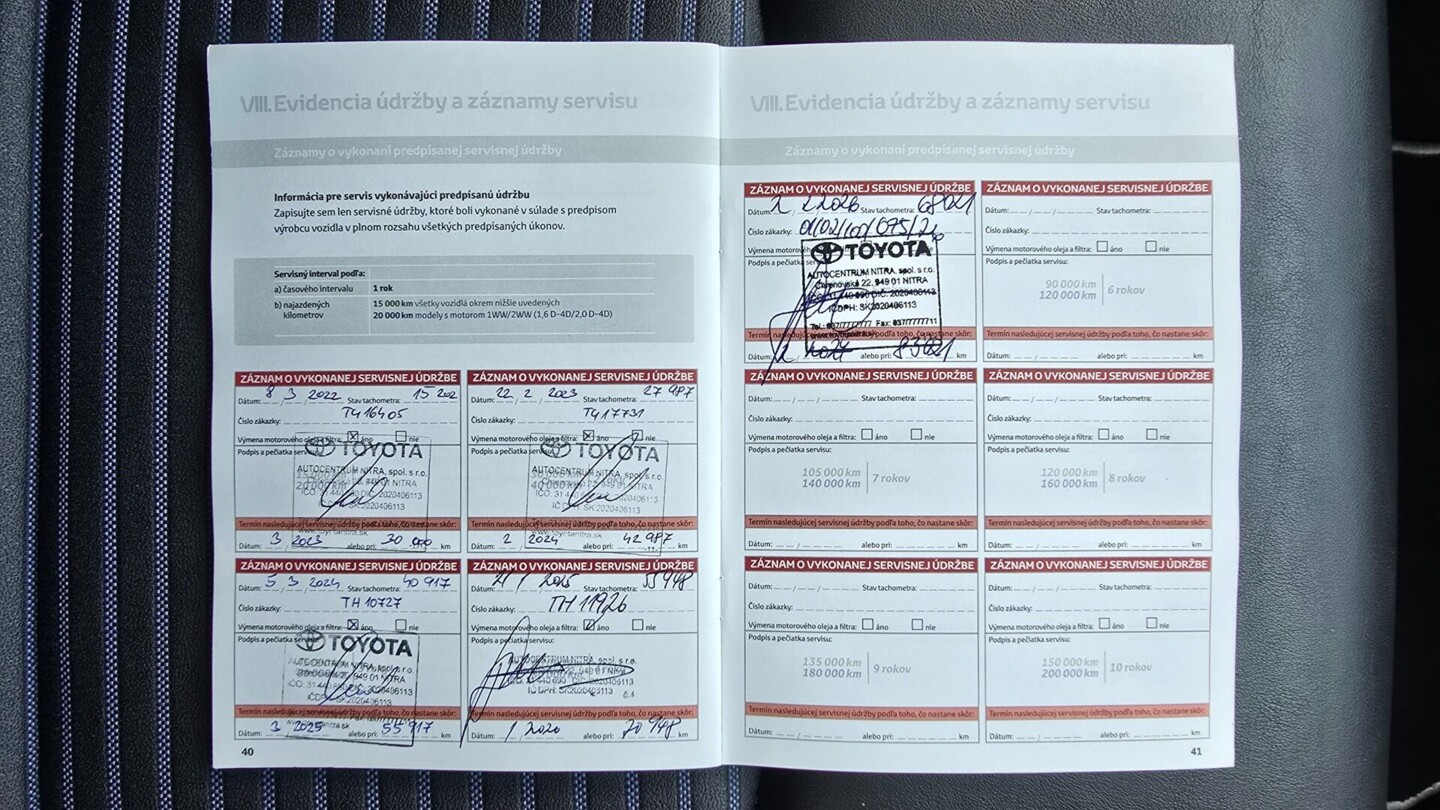 VIII. Evidencia údržby a záznamy servisu
Záznamy o vykonaní predpísanej servisnej údržby
Informácia pre servis vykonávajúci predpísanú údržbu
Zapisujte sem len servisné údržby, ktoré boli vykonané v súlade s predpisom
výrobcu vozidla v plnom rozsahu všetkých predpísaných úkonov.
Servisný interval podľa:
a) časového intervalu 1 rok
b) najazdených 15 000 km všetky vozidlá okrem nižšie uvedených
kilometrov 20 000 km modely s motorom 1WW/2WW (1,6 D-4D/2,0 D-4D)
ZÁZNAM O VYKONANEJ SERVISNEJ ÚDRŽBE
Dátum: 8 / 3 / 2022 Stav tachometra: 15 202
Číslo zákazky: T416405
Výmena motorového oleja a filtra: áno nie
Podpis a pečiatka servisu:
TOYOTA
AUTOCENTRUM NITRA, spol. s r.o.
Termín nasledujúcej servisnej údržby podľa toho, čo nastane skôr:
Dátum: 3 2023 alebo pri: 30 000 km
ZÁZNAM O VYKONANEJ SERVISNEJ ÚDRŽBE
Dátum: 22 / 2 / 2023 Stav tachometra: 27 987
Číslo zákazky: T417731
Výmena motorového oleja a filtra: áno nie
Podpis a pečiatka servisu:
TOYOTA
AUTOCENTRUM NITRA, spol. s r.o.
Termín nasledujúcej servisnej údržby podľa toho, čo nastane skôr:
Dátum: 2 2024 alebo pri: 42 987 km
ZÁZNAM O VYKONANEJ SERVISNEJ ÚDRŽBE
Dátum: 5 3 2024 Stav tachometra: 40 917
Číslo zákazky: TH 10727
Výmena motorového oleja a filtra: áno nie
Podpis a pečiatka servisu:
TOYOTA
AUTOCENTRUM NITRA, spol. s r.o.
Termín nasledujúcej servisnej údržby podľa toho, čo nastane skôr:
Dátum: 3 2025 alebo pri: 55 917 km
ZÁZNAM O VYKONANEJ SERVISNEJ ÚDRŽBE
Dátum: 21 / 1 / 2025 Stav tachometra: 55 948
Číslo zákazky: TH 11926
Výmena motorového oleja a filtra: áno nie
Podpis a pečiatka servisu:
AUTOCENTRUM NITRA, spol. s r.o.
Termín nasledujúcej servisnej údržby podľa toho, čo nastane skôr:
Dátum: 1 2026 alebo pri: 70 948 km
40
VIII. Evidencia údržby a záznamy servisu
Záznamy o vykonaní predpísanej servisnej údržby
ZÁZNAM O VYKONANEJ SERVISNEJ ÚDRŽBE
Dátum: 2 / 2 / 2026 Stav tachometra: 68021
Číslo zákazky:
Výmena motorového oleja
Podpis a pečiatka
TOYOTA
AUTOCENTRUM NITRA, spol. s r.o.
22, 949 01 NITRA
DIČ: 2020406113
IČDPH: SK2020406113
Tel.: 037/7777777 Fax: 037/7777711
Termín nasledujúcej servisnej údržby podľa toho, čo nastane skôr:
Dátum: 2 2027 alebo pri: 83021 km
ZÁZNAM O VYKONANEJ SERVISNEJ ÚDRŽBE
Dátum: Stav tachometra:
Číslo zákazky:
Výmena motorového oleja a filtra: áno nie
Podpis a pečiatka servisu:
90 000 km
120 000 km
6 rokov
Termín nasledujúcej servisnej údržby podľa toho, čo nastane skôr:
Dátum: alebo pri: km
ZÁZNAM O VYKONANEJ SERVISNEJ ÚDRŽBE
Dátum: Stav tachometra:
Číslo zákazky:
Výmena motorového oleja a filtra: áno nie
Podpis a pečiatka servisu:
105 000 km
140 000 km
7 rokov
Termín nasledujúcej servisnej údržby podľa toho, čo nastane skôr:
Dátum: alebo pri: km
ZÁZNAM O VYKONANEJ SERVISNEJ ÚDRŽBE
Dátum: Stav tachometra:
Číslo zákazky:
Výmena motorového oleja a filtra: áno nie
Podpis a pečiatka servisu:
120 000 km
160 000 km
8 rokov
Termín nasledujúcej servisnej údržby podľa toho, čo nastane skôr:
Dátum: alebo pri: km
ZÁZNAM O VYKONANEJ SERVISNEJ ÚDRŽBE
Dátum: Stav tachometra:
Číslo zákazky:
Výmena motorového oleja a filtra: áno nie
Podpis a pečiatka servisu:
135 000 km
180 000 km
9 rokov
Termín nasledujúcej servisnej údržby podľa toho, čo nastane skôr:
Dátum: alebo pri: km
ZÁZNAM O VYKONANEJ SERVISNEJ ÚDRŽBE
Dátum: Stav tachometra:
Číslo zákazky:
Výmena motorového oleja a filtra: áno nie
Podpis a pečiatka servisu:
150 000 km
200 000 km
10 rokov
Termín nasledujúcej servisnej údržby podľa toho, čo nastane skôr:
Dátum: alebo pri: km
41